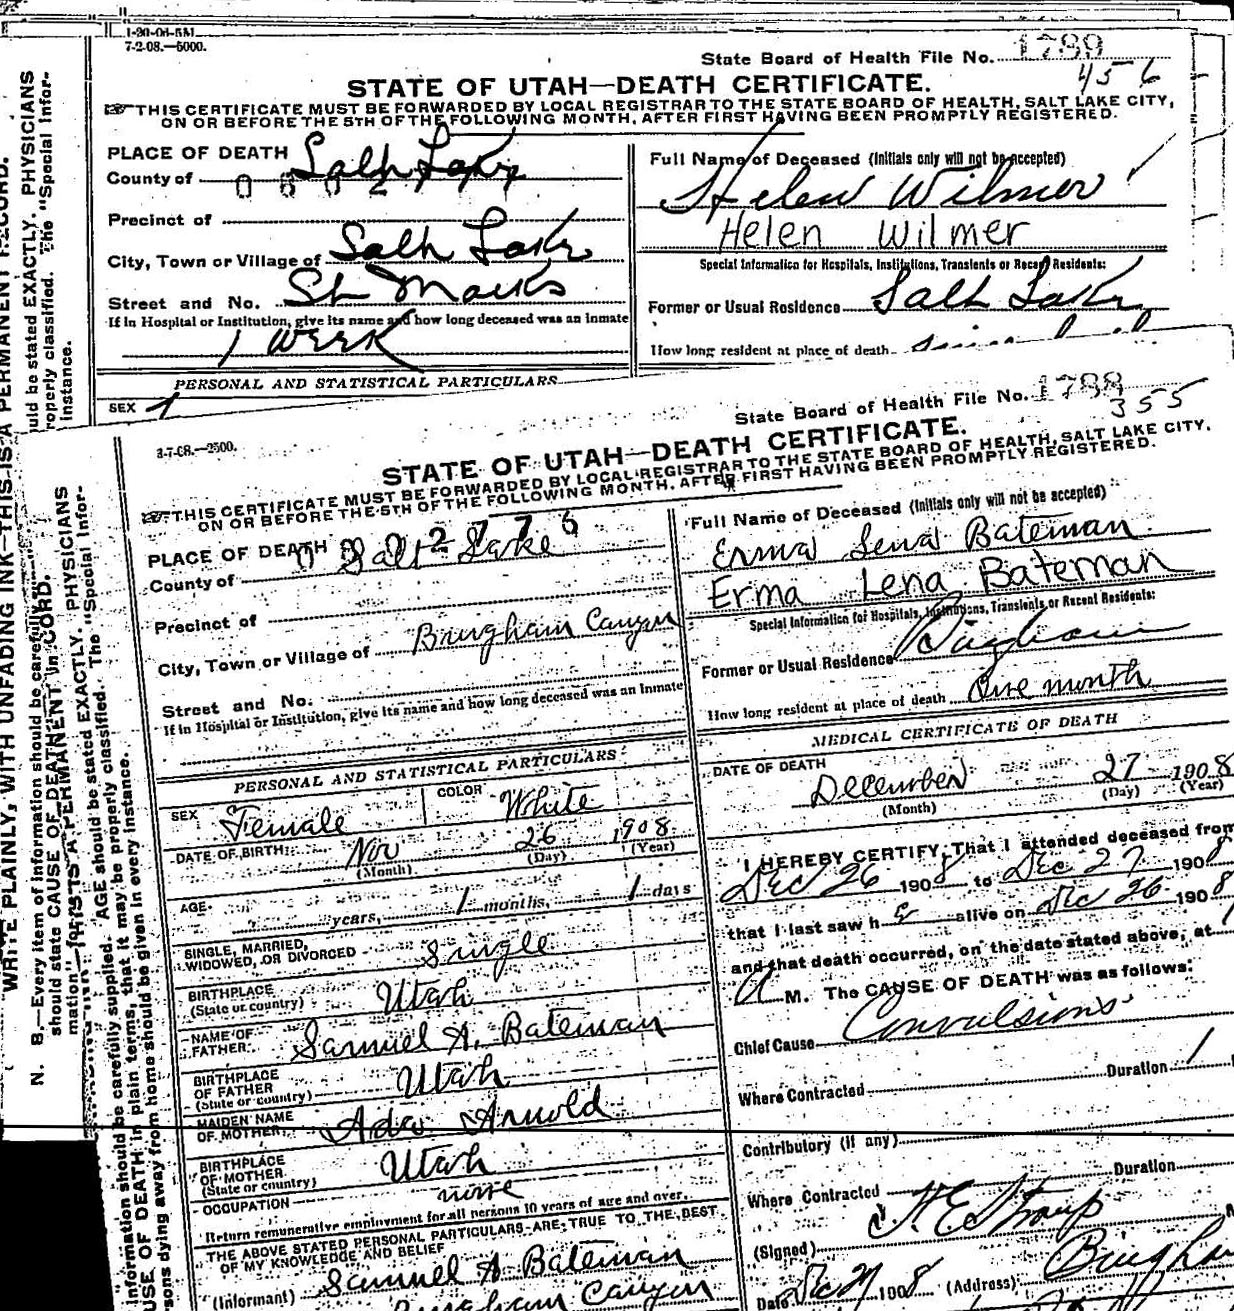 1-20-08-5M
7-2-08.—5000.
State Board of Health File No. 1789
456
STATE OF UTAH—DEATH CERTIFICATE.
THIS CERTIFICATE MUST BE FORWARDED BY LOCAL REGISTRAR TO THE STATE BOARD OF HEALTH, SALT LAKE CITY,
ON OR BEFORE THE 5TH OF THE FOLLOWING MONTH, AFTER FIRST HAVING BEEN PROMPTLY REGISTERED.
PLACE OF DEATH
County of Salt Lake
Precinct of
City, Town or Village of Salt Lake
Street and No. St Marks
If in Hospital or Institution, give its name and how long deceased was an inmate
1 Week
PERSONAL AND STATISTICAL PARTICULARS
SEX
Full Name of Deceased (Initials only will not be accepted)
Helen Wilmer
Helen Wilmer
Special Information for Hospitals, Institutions, Transients or Recent Residents:
Former or Usual Residence Salt Lake
How long resident at place of death
WRITE PLAINLY, WITH UNFADING INK—THIS IS A PERMANENT RECORD.
N. B.—Every item of information should be carefully
should state CAUSE OF DEATH in
uld be stated EXACTLY. PHYSICIANS
roperly classified. The "Special Infor-
instance.
3-7-08.—2500.
State Board of Health File No. 1788
355
STATE OF UTAH—DEATH CERTIFICATE.
THIS CERTIFICATE MUST BE FORWARDED BY LOCAL REGISTRAR TO THE STATE BOARD OF HEALTH, SALT LAKE CITY,
ON OR BEFORE THE 5TH OF THE FOLLOWING MONTH, AFTER FIRST HAVING BEEN PROMPTLY REGISTERED.
PLACE OF DEATH
County of Salt Lake
Precinct of
City, Town or Village of Bingham Canyon
Street and No.
If in Hospital or Institution, give its name and how long deceased was an Inmate
PERSONAL AND STATISTICAL PARTICULARS
SEX Female COLOR White
DATE OF BIRTH Nov 26 1908
(Month) (Day) (Year)
AGE years, 1 months, 1 days
SINGLE, MARRIED,
WIDOWED, OR DIVORCED Single
BIRTHPLACE
(State or country) Utah
NAME OF
FATHER Samuel A. Bateman
BIRTHPLACE
OF FATHER
(State or country) Utah
MAIDEN NAME
OF MOTHER Ada Arnold
BIRTHPLACE
OF MOTHER
(State or country) Utah
OCCUPATION none
Return remunerative employment for all persons 10 years of age and over.
THE ABOVE STATED PERSONAL PARTICULARS ARE TRUE TO THE BEST
OF MY KNOWLEDGE AND BELIEF
(Informant) Samuel A Bateman
Bingham Canyon
Full Name of Deceased (Initials only will not be accepted)
Erma Lena Bateman
Erma Lena Bateman
Special Information for Hospitals, Institutions, Transients or Recent Residents:
Former or Usual Residence Bingham
How long resident at place of death One month
MEDICAL CERTIFICATE OF DEATH
DATE OF DEATH
December 27 1908
(Month) (Day) (Year)
I HEREBY CERTIFY, That I attended deceased from
Dec 26 1908 to Dec 27 1908
that I last saw h alive on Dec 26 1908
and that death occurred, on the date stated above, at
A M. The CAUSE OF DEATH was as follows:
Chief Cause Convulsions
Duration 1
Where Contracted
Contributory (if any)
Duration
Where Contracted
(Signed)
Date Dec 27 1908 (Address)
PERMANENT RECORD.
PHYSICIANS
AGE should be stated EXACTLY.
properly classified. The "Special Infor-
information should be carefully supplied.
USE OF DEATH in plain terms, that it may be
rsons dying away from home should be given in every instance.